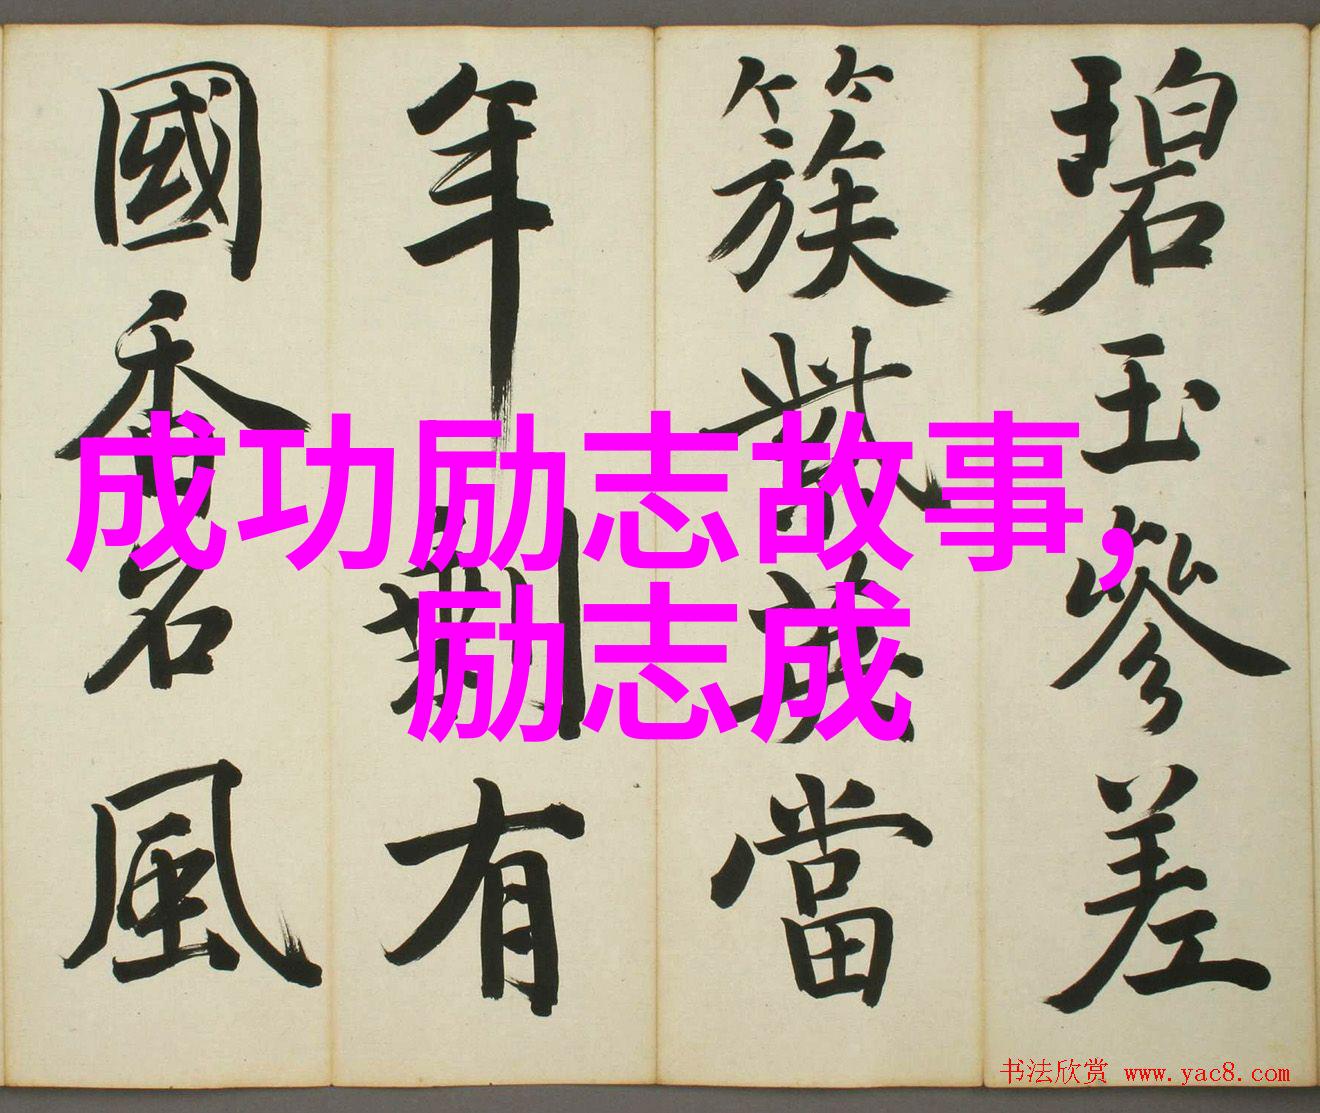 碧玉參差
簇紫英當
年剩有
國香名風
成功励志故事,
励志成
书法欣赏 www.yac8.com